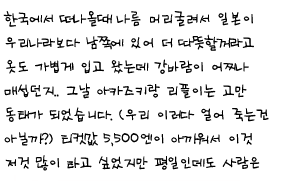 한국에서 떠나올때 나름 머리굴려서 일본이
우리나라보다 남쪽에 있어 더 따뜻할꺼라고
옷도 가볍게 입고 왔는데 강바람이 어찌나
매섭던지.. 그날 아카즈키랑 리플이는 고만
동태가 되었습니다. (우리 이러다 얼어 죽는건
아닐까?) 티켓값 5,500엔이 아까워서 이것
저것 많이 타고 싶었지만 평일인데도 사람은